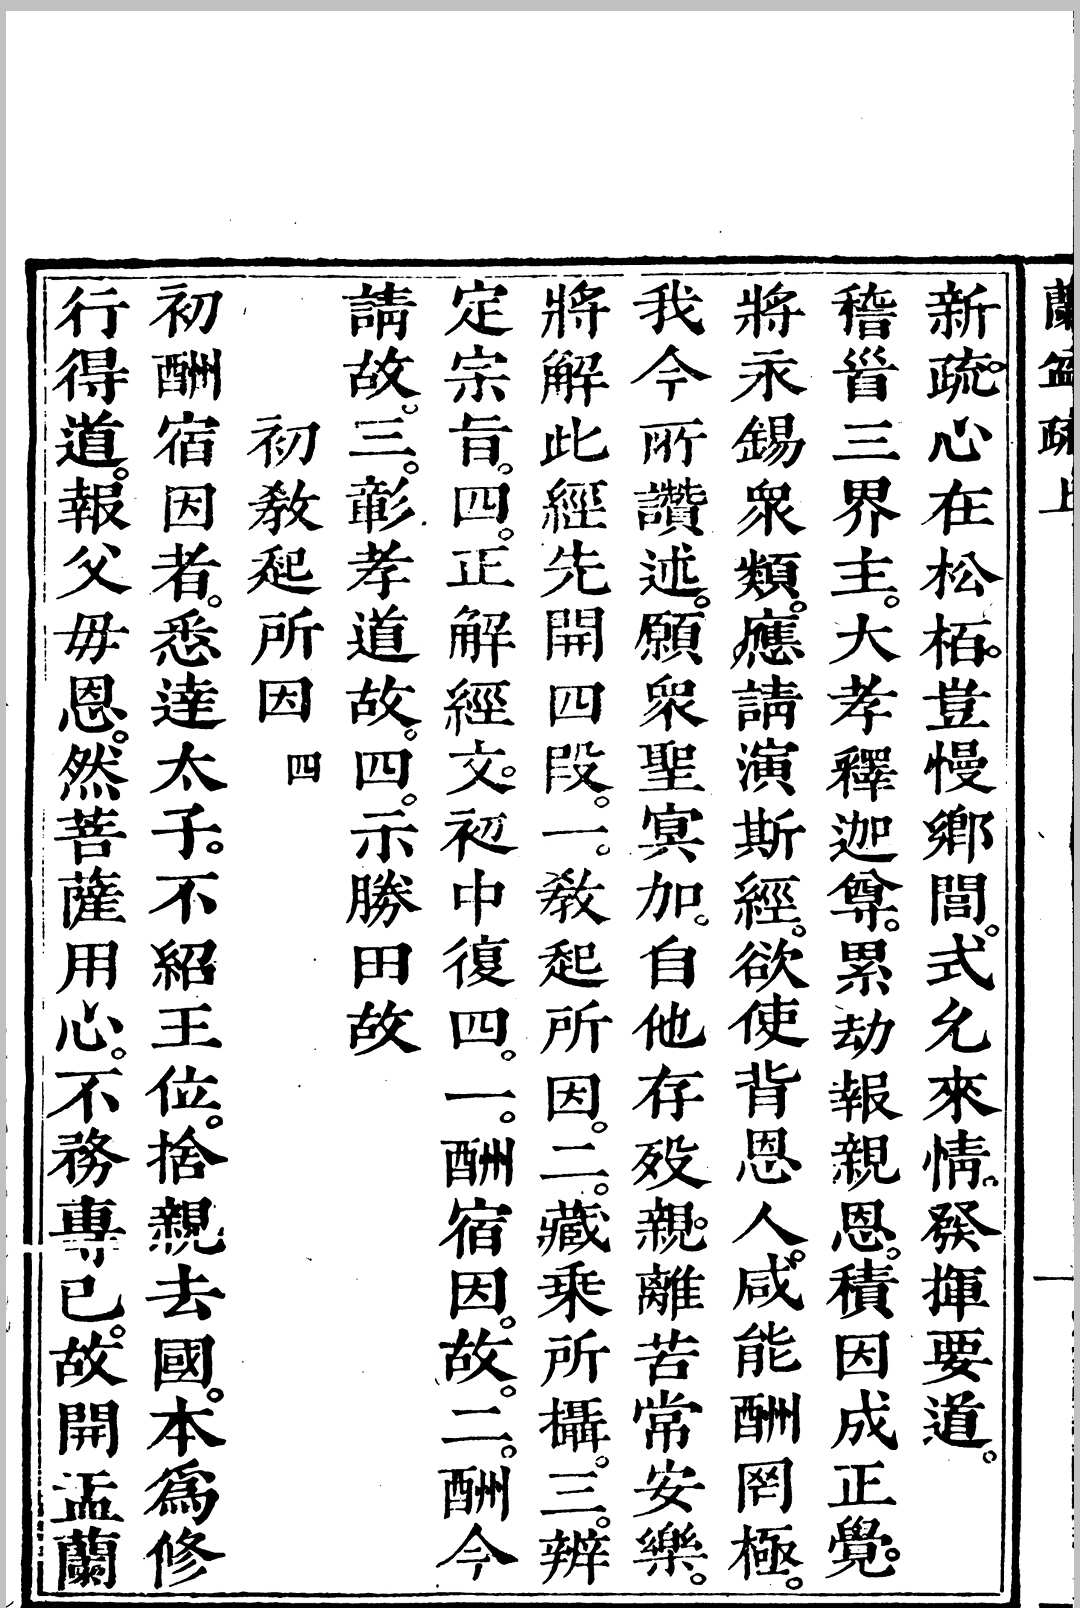 蘭盆疏上 一
新疏。心在松栢。豈慢鄉閭。式允來情。發揮要道。
稽首三界主。大孝釋迦尊。累劫報親恩。積因成正覺。
將永錫衆類。應請演斯經。欲使背恩人。咸能酬罔極。
我今所讚述。願衆聖冥加。自他存殁親。離苦常安樂。
將解此經先開四段。一。教起所因。二。藏乘所攝。三。辨
定宗旨。四。正解經文。初中復四。一。酬宿因。故。二。酬今
請故。三。彰孝道故。四。示勝田故
初教起所因 四
初酬宿因者。悉達太子。不紹王位。捨親去國。本爲修
行得道。報父母恩。然菩薩用心。不務專己。故開盂蘭